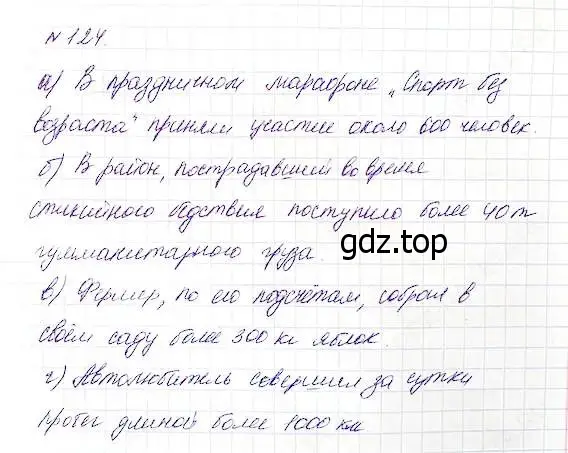 № 124.
а) В праздничном марафоне „Спорт без
возраста" приняли участие около 600 человек.
б) В район, пострадавший во время
стихийного бедствия поступило более 40 т
гумманитарного груза.
gdz.top
в) Фермер, по его подсчётам, собрал в
своём саду более 300 кг яблок.
г) Автолюбитель совершил за сутки
пробег длиной более 1000 км